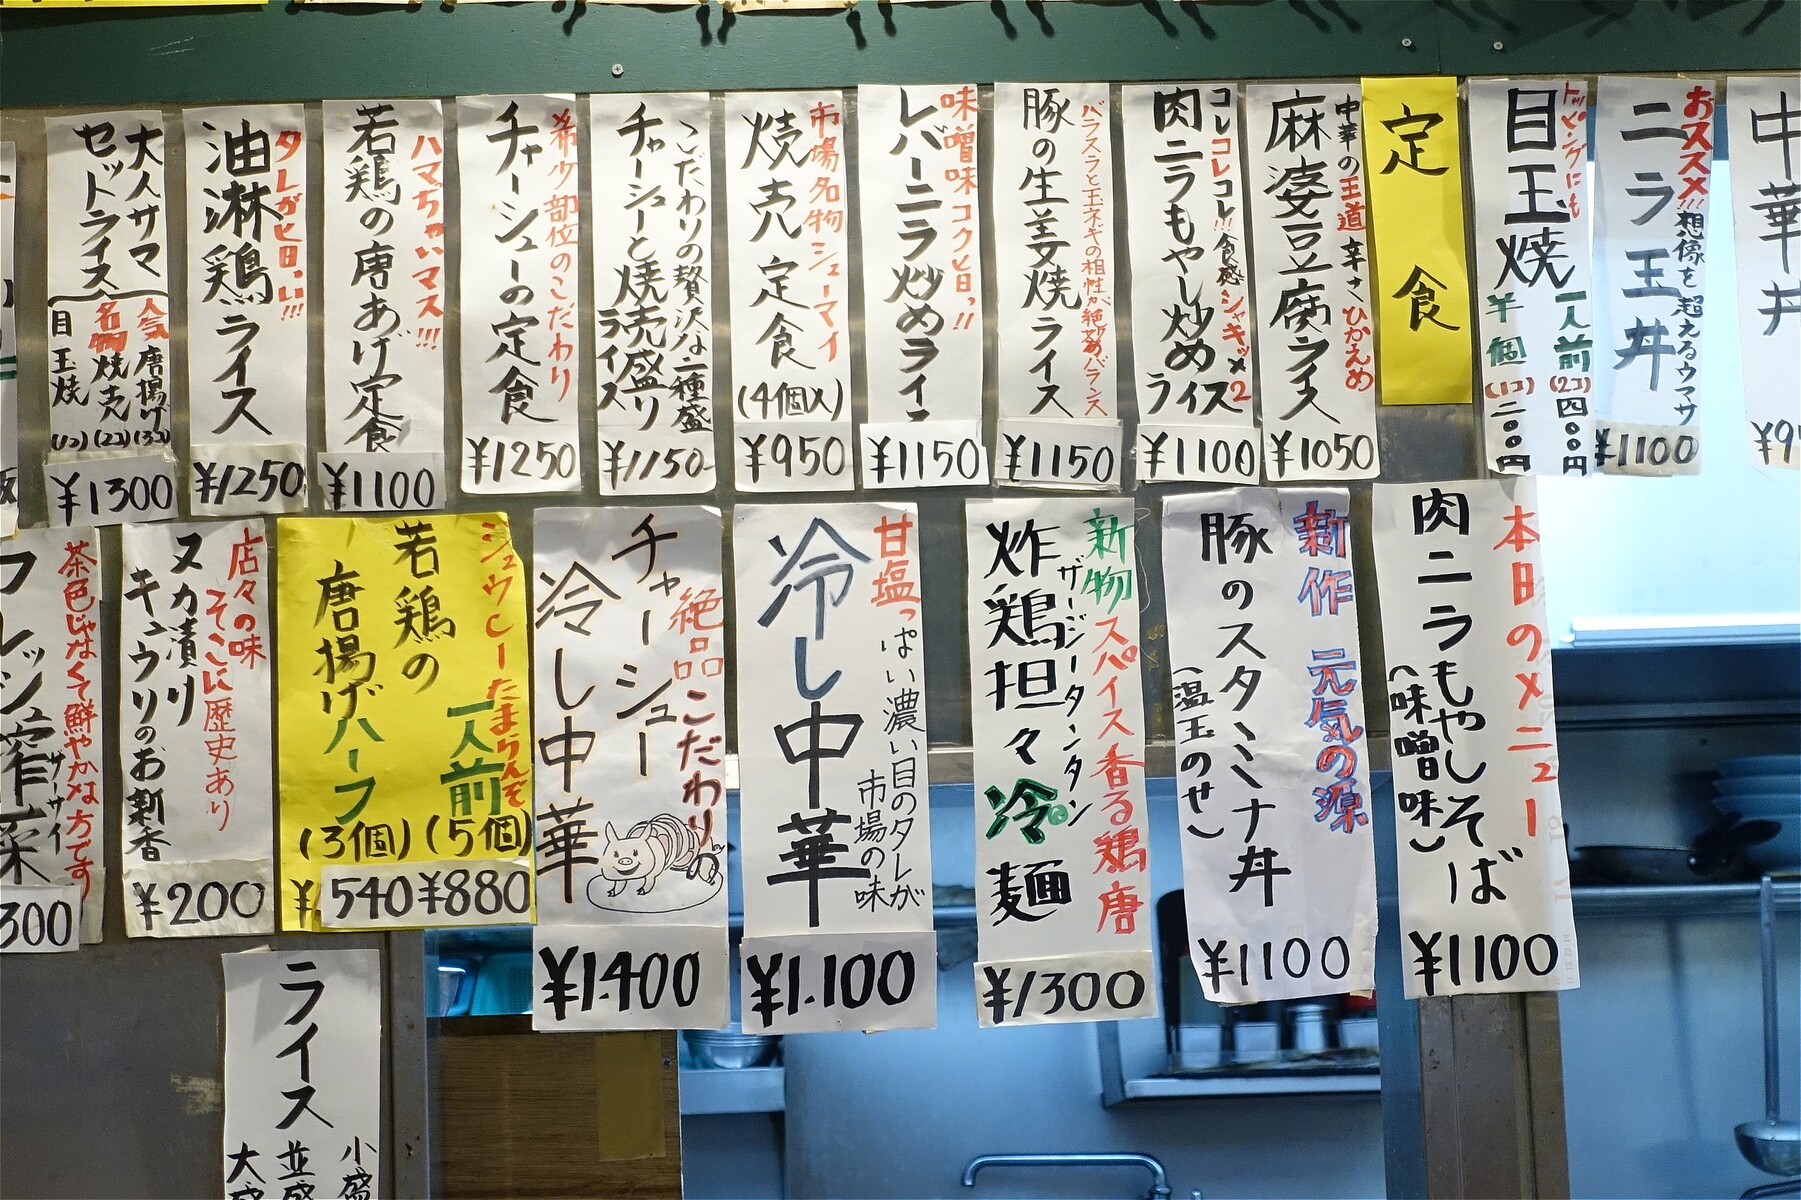 中華丼
おススメ!!想像を超えるウマサ
ニラ玉丼
¥1100
トッピングにも
目玉焼
一人前(2コ)四〇〇円
半個(1コ)二〇〇円
定食
中華の王道 辛さひかえめ
麻婆豆腐ライス
¥1050
コレコレコレ!!!食感シャキッ×2
肉ニラもやし炒めライス
¥1100
バラスラと玉ネギの相性が絶妙めバランス
豚の生姜焼ライス
¥1150
味噌味コクヒ日っ!!
レバーニラ炒めライス
¥1150
市場名物シューマイ
焼売定食
(4個入)
¥950
こだわりの贅沢な二種盛
チャーシューと焼売盛り
ライス
¥1150-
希少部位のこだわり
チャーシューの定食
¥1250
ハマぢゃいマス!!!
若鶏の唐あげ定食
¥1100
タレがヒ日っい!!!
油淋鶏ライス
¥1250
大人サマ
セットライス
人気唐揚げ(3コ)
名物焼売(2コ)
目玉焼(1コ)
¥1300
本日のメニュー
肉ニラもやしそば
(味噌味)
¥1100
新作 元気の源
豚のスタミナ丼
(温玉のせ)
¥1100
新物スパイス香る鶏唐
ザージータンタン
炸鶏担々冷麺
¥1300
甘塩っぱい濃い目のタレが
市場の味
冷し中華
¥1.100
絶品こだわりの
チャーシュー
冷し中華
¥1.400
ジュウしーたまらんぞ
若鶏の
唐揚げ
一人前(5個)
ハーフ(3個)
¥880
¥540
店々の味
そこに歴史あり
ヌカ漬り
キュウリのお新香
¥200
茶色じゃなくて鮮やかな方です
ザーサイ
フレッシュ搾菜
300
ライス
小盛
並盛
大盛